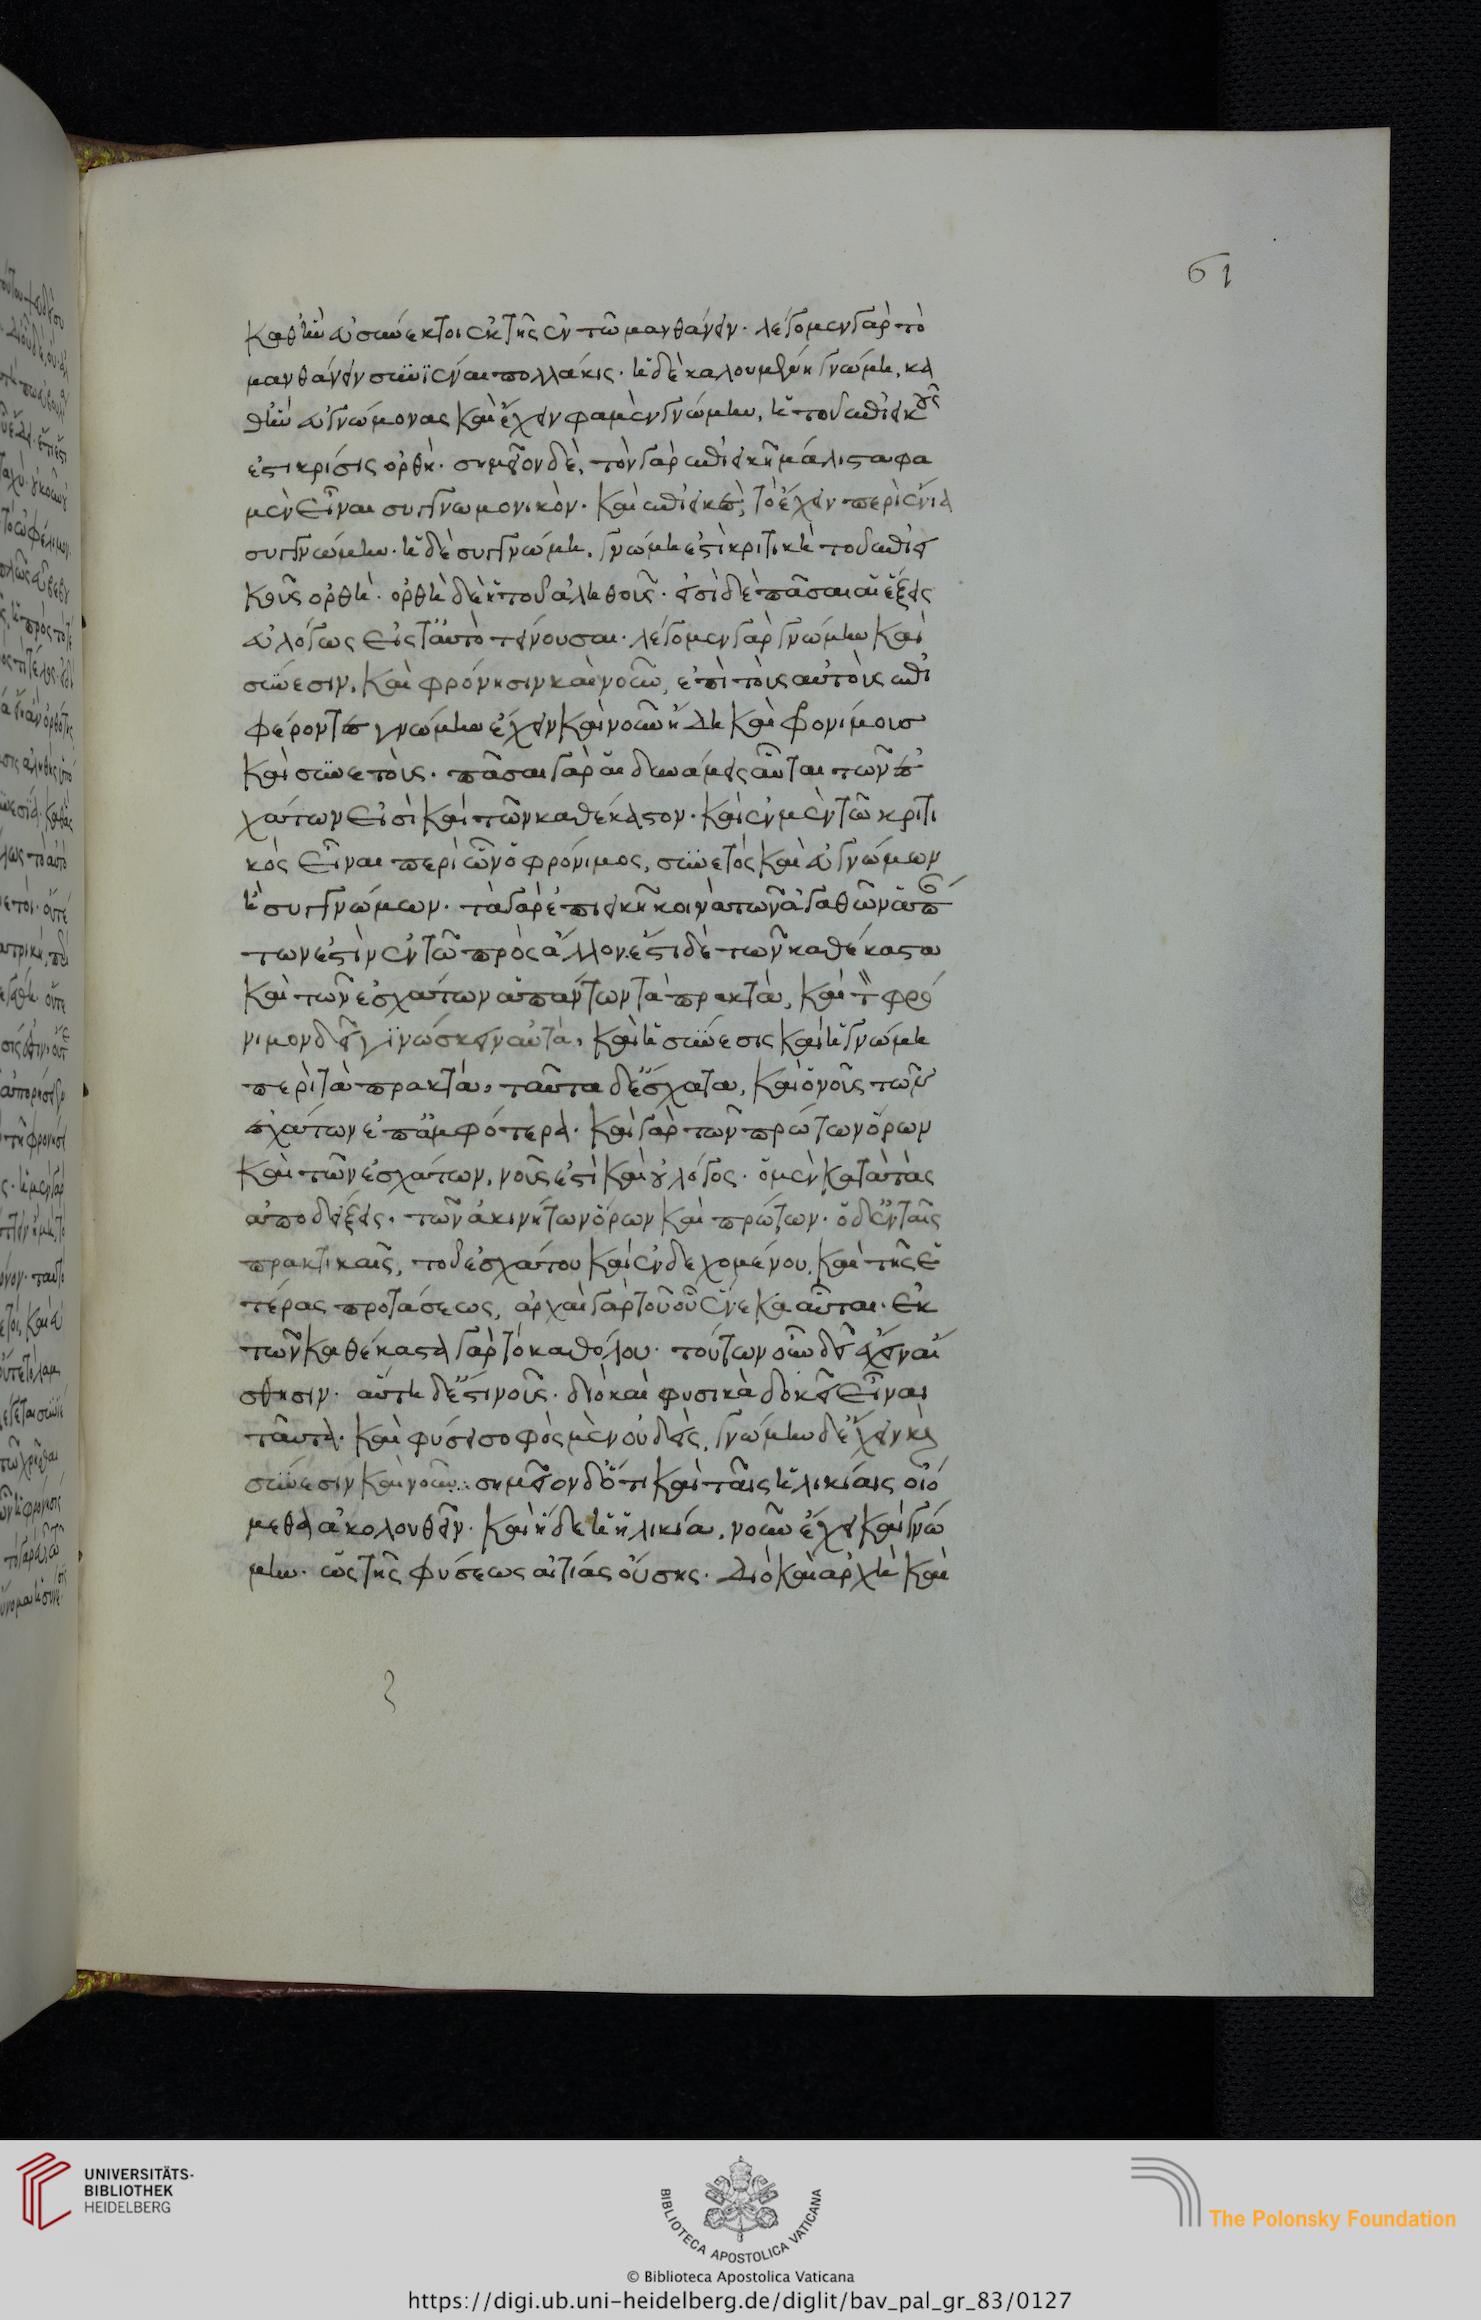 61
καθ' ἣν εὐσύνετοι ἐκ τῆς ἐν τῶ μανθάνειν· λέγομεν γὰρ τὸ
μανθάνειν συνϊέναι πολλάκις· ἡ δὲ καλουμένη γνώμη, κα
θ' ἣν εὐγνώμονας καὶ ἔχειν φαμὲν γνώμην, ἡ τοῦ ἐπιεικοῦς
ἐστὶ κρίσις ὀρθή· σημεῖον δὲ, τὸν γὰρ ἐπιεικῆ μάλιστα φα
μὲν εἶναι συγγνωμονικὸν· καὶ ἐπιεικὲς, τὸ ἔχειν περὶ ἔνια
συγγνώμην· ἡ δὲ συγγνώμη, γνώμη ἐστὶ κριτικὴ τοῦ ἐπιει
κοῦς ὀρθή· ὀρθὴ δὲ ἡ τοῦ ἀληθοῦς· εἰσὶ δὲ πᾶσαι αἱ ἕξεις
εὐλόγως εἰς ταὐτὸ τείνουσαι· λέγομεν γὰρ γνώμην καὶ
σύνεσιν, καὶ φρόνησιν καὶ νοῦν, ἐπὶ τοὺς αὐτοὺς ἐπι
φέροντες γνώμην ἔχειν καὶ νοῦν ἤδη καὶ φρονίμους
καὶ συνετούς· πᾶσαι γὰρ αἱ δυνάμεις αὗται τῶν ἐσ
χάτων εἰσὶ καὶ τῶν καθέκαστον· καὶ ἐν μὲν τῶ κριτι
κὸς εἶναι περὶ ὧν ὁ φρόνιμος, συνετὸς καὶ εὐγνώμων
ἢ συγγνώμων· τὰ γὰρ ἐπιεικῆ κοινὰ τῶν ἀγαθῶν ἁπάν
των ἐστὶν ἐν τῶ πρὸς ἄλλον· ἔστι δὲ τῶν καθέκαστα
καὶ τῶν ἐσχάτων ἁπάντων τὰ πρακτά, καὶ τὸν φρό
νιμον δεῖ γϊνώσκειν αὐτά, καὶ ἡ σύνεσις καὶ ἡ γνώμη
περὶ τὰ πρακτά, ταῦτα δ' ἔσχατα, καὶ ὁ νοῦς τῶν ἐ
σχάτων ἐπ' ἀμφότερα· καὶ γὰρ τῶν πρώτων ὅρων
καὶ τῶν ἐσχάτων, νοῦς ἐστὶ καὶ οὐ λόγος· ὁ μὲν κατὰ τὰς
ἀποδείξεις, τῶν ἀκινήτων ὅρων καὶ πρώτων· ὁ δ' ἐν ταῖς
πρακτικαῖς, τοῦ δ' ἐσχάτου καὶ ἐνδεχομένου, καὶ τῆς ἑ
τέρας προτάσεως, ἀρχαὶ γὰρ τοῦ οὗ ἕνεκα αὗται· ἐκ
τῶν καθέκαστα γὰρ τὸ καθόλου· τούτων οὖν δεῖ ἔχειν αἴ
σθησιν· αὕτη δ' ἔστι νοῦς· διὸ καὶ φυσικὰ δοκεῖ εἶναι
ταῦτα· καὶ φύσει σοφὸς μὲν οὐδεὶς, γνώμην δ' ἔχειν καὶ
σύνεσιν καὶ νοῦν· σημεῖον δ' ὅτι καὶ ταῖς ἡλικίαις οἰό
μεθα ἀκολουθεῖν· καὶ ἥδε ἡ ἡλικία, νοῦν ἔχει καὶ γνώ
μην· ὡς τῆς φύσεως αἰτίας οὔσης· Διὸ καὶ ἀρχὴ καὶ
UNIVERSITÄTS-
BIBLIOTHEK
HEIDELBERG
BIBLIOTECA APOSTOLICA VATICANA
The Polonsky Foundation
© Biblioteca Apostolica Vaticana
https://digi.ub.uni-heidelberg.de/diglit/bav_pal_gr_83/0127